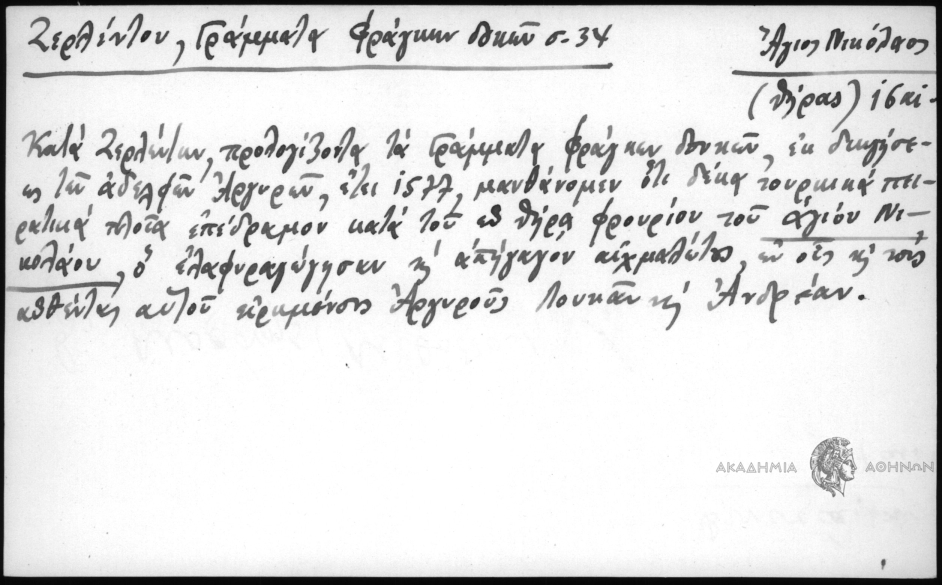 Ζερλέντου, Γράμματα Φράγκων δουκῶν σ. 34
Ἅγιος Νικόλαος
(Θήρας) 16 αἰ.
Κατά Ζερλέντην, προλογίζοντα τά Γράμματα Φράγκων δουκῶν, ἐκ διηγήσε-
ως τῶν ἀδελφῶν Ἀργυρῶν, ἔτει 1577, μανθάνομεν ὅτι δέκα τουρκικά πει-
ρατικά πλοῖα ἐπέδραμον κατά τοῦ ἐν Θήρᾳ φρουρίου τοῦ ἁγίου Νι-
κολάου, ὅ ἐλαφυραγώγησαν κ' ἀπήγαγον αἰχμαλώτους, ἐν οἷς κ' τούς
αὐθέντας αὐτοῦ Ἀργυρούς Λουκᾶν κ' Ἀνδρέαν.
ΑΚΑΔΗΜΙΑ ΑΘΗΝΩΝ